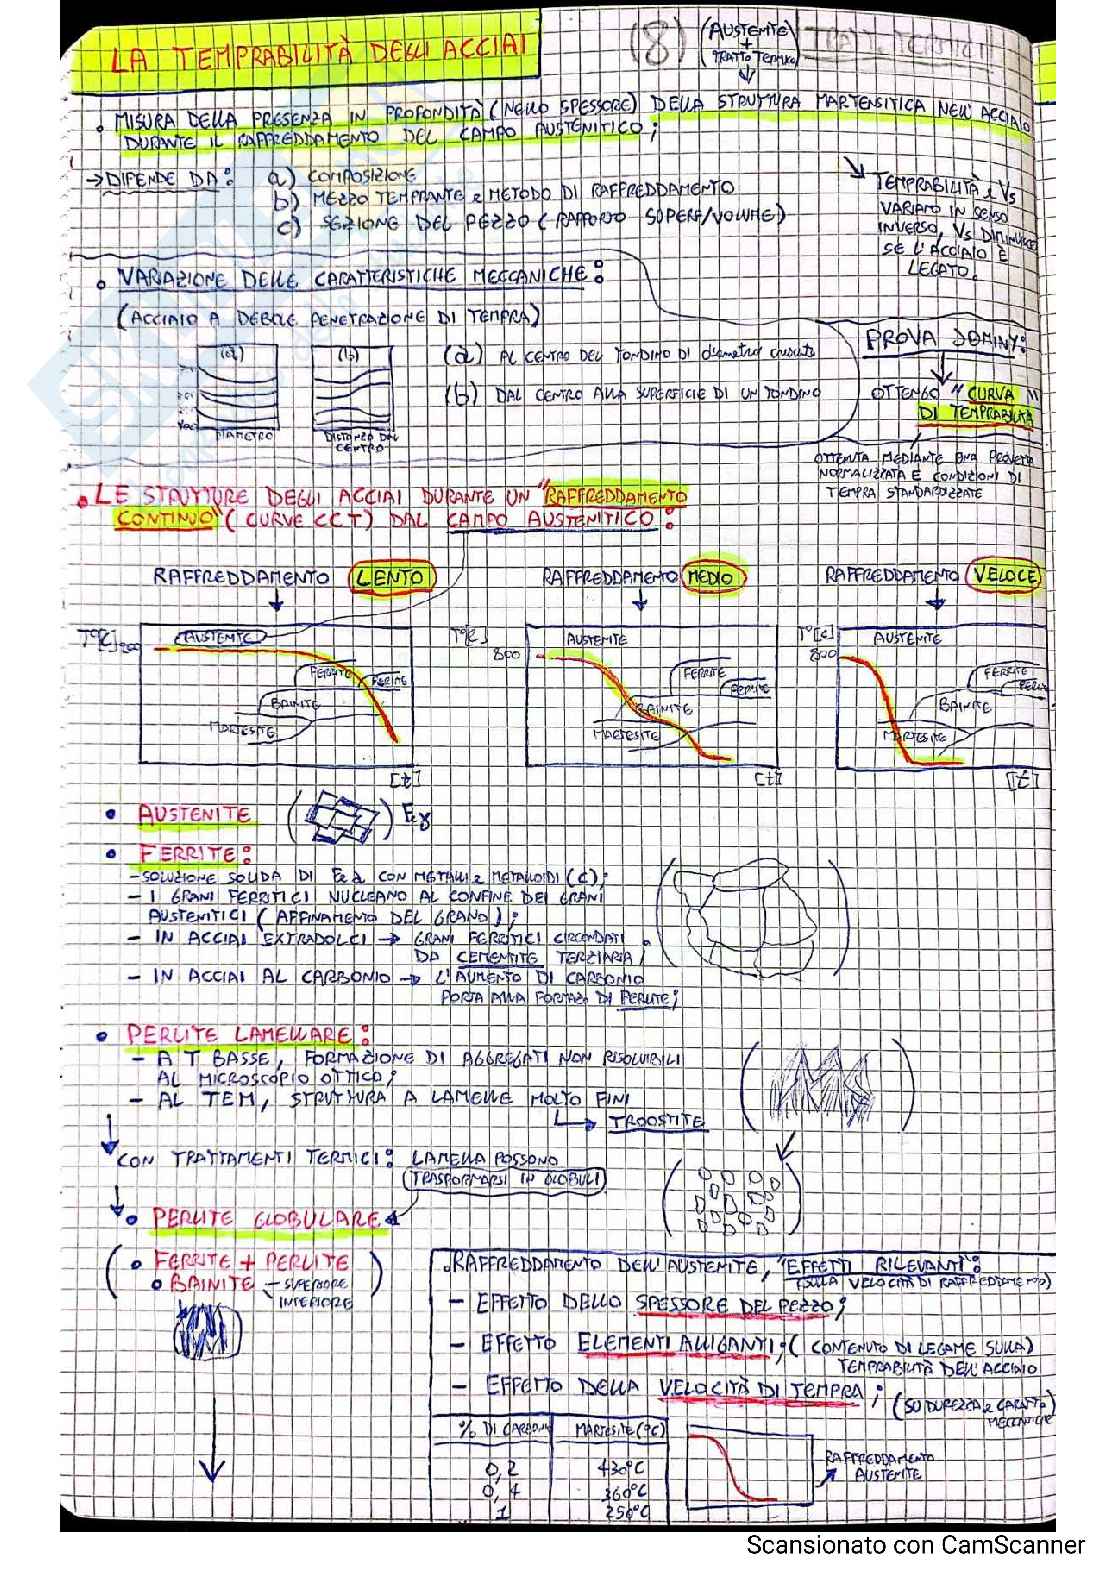 LA TEMPRABILITÀ DEGLI ACCIAI
(8)
(AUSTENITE
+
TRATTO TERMICO)
TRATT. TERMICI
• MISURA DELLA PRESENZA IN PROFONDITÀ (NELLO SPESSORE) DELLA STRUTTURA MARTENSITICA NELL'ACCIAIO
DURANTE IL RAFFREDDAMENTO DEL CAMPO AUSTENITICO;
→ DIPENDE DA: a) COMPOSIZIONE
b) MEZZO TEMPRANTE e METODO DI RAFFREDDAMENTO
c) SEZIONE DEL PEZZO (RAPPORTO SUPERF/VOLUME)
TEMPRABILITÀ e Vs
VARIANO IN SENSO
INVERSO, Vs DIMINUISCE
SE L'ACCIAIO È
LEGATO.
• VARIAZIONE DELLE CARATTERISTICHE MECCANICHE:
(ACCIAIO A DEBOLE PENETRAZIONE DI TEMPRA)
(a)
(b)
DIAMETRO
DISTANZA DAL
CENTRO
(a) AL CENTRO DEL TONDINO DI diametro crescente
(b) DAL CENTRO ALLA SUPERFICIE DI UN TONDINO
PROVA JOMINY:
OTTENGO "CURVA
DI TEMPRABILITÀ"
OTTENUTA MEDIANTE UNA PROVETTA
NORMALIZZATA E CONDIZIONI DI
TEMPRA STANDARDIZZATE
• LE STRUTTURE DEGLI ACCIAI DURANTE UN "RAFFREDDAMENTO
CONTINUO" (CURVE CCT) DAL CAMPO AUSTENITICO:
RAFFREDDAMENTO LENTO
RAFFREDDAMENTO MEDIO
RAFFREDDAMENTO VELOCE
T°[C]
800
AUSTENITE
FERRITE
PERLITE
BAINITE
MARTESITE
[t]
T°[C]
800
AUSTENITE
FERRITE
PERLITE
BAINITE
MARTESITE
[t]
T°[C]
800
AUSTENITE
FERRITE
PERLI
BAINITE
MARTESITE
[t]
• AUSTENITE ( ) Feγ
• FERRITE:
- SOLUZIONE SOLIDA DI Feα CON METALLI e METALLOIDI (C);
- I GRANI FERRITICI NUCLEANO AL CONFINE DEI GRANI
AUSTENITICI (AFFINAMENTO DEL GRANO);
- IN ACCIAI EXTRADOLCI → GRANI FERRITICI CIRCONDATI
DA CEMENTITE TERZIARIA;
- IN ACCIAI AL CARBONIO → L'AUMENTO DI CARBONIO
PORTA ALLA FORMAZ. DI PERLITE;
• PERLITE LAMELLARE:
- A T BASSE, FORMAZIONE DI AGGREGATI NON RISOLVIBILI
AL MICROSCOPIO OTTICO;
- AL TEM, STRUTTURA A LAMELLE MOLTO FINI
→ TROOSTITE
CON TRATTAMENTI TERMICI: LAMELLA POSSONO
(TRASFORMARSI IN GLOBULI)
• PERLITE GLOBULARE
• FERRITE + PERLITE
• BAINITE - SUPERIORE
INFERIORE
• RAFFREDDAMENTO DELL'AUSTENITE, "EFFETTI RILEVANTI":
(SULLA VELOCITÀ DI RAFFREDDAMENTO)
- EFFETTO DELLO SPESSORE DEL PEZZO;
- EFFETTO ELEMENTI ALLIGANTI; (CONTENUTO DI LEGAME SULLA)
TEMPRABILITÀ DELL'ACCIAIO
- EFFETTO DELLA VELOCITÀ DI TEMPRA; (SU DUREZZA e CARATT.
MECCANICHE)
% DI CARBONIO MARTESITE (°C)
0,2 430°C
0,4 360°C
1 250°C
RAFFREDDAMENTO
AUSTENITE
Scansionato con CamScanner